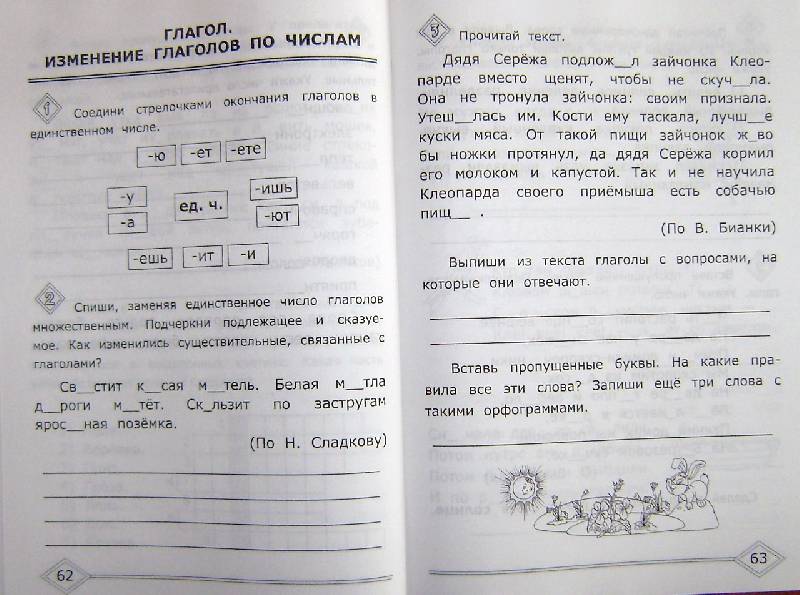 ГЛАГОЛ.
ИЗМЕНЕНИЕ ГЛАГОЛОВ ПО ЧИСЛАМ
1 Соедини стрелочками окончания глаголов в
единственном числе.
-ю -ет -ете
-у -ишь
ед. ч.
-а -ют
-ешь -ит -и
2 Спиши, заменяя единственное число глаголов
множественным. Подчеркни подлежащее и сказуе-
мое. Как изменились существительные, связанные с
глаголами?
Св__стит к__сая м__тель. Белая м__тла
д__роги м__тёт. Ск_льзит по застругам
ярос__ная позёмка.
(По Н. Сладкову)
62
5 Прочитай текст.
Дядя Серёжа подлож__л зайчонка Клео-
парде вместо щенят, чтобы не скуч__ла.
Она не тронула зайчонка: своим признала.
Утеш__лась им. Кости ему таскала, лучш__е
куски мяса. От такой пищи зайчонок ж_во
бы ножки протянул, да дядя Серёжа кормил
его молоком и капустой. Так и не научила
Клеопарда своего приёмыша есть собачью
пищ__ .
(По В. Бианки)
Выпиши из текста глаголы с вопросами, на
которые они отвечают.
Вставь пропущенные буквы. На какие пра-
вила все эти слова? Запиши ещё три слова с
такими орфограммами.
63